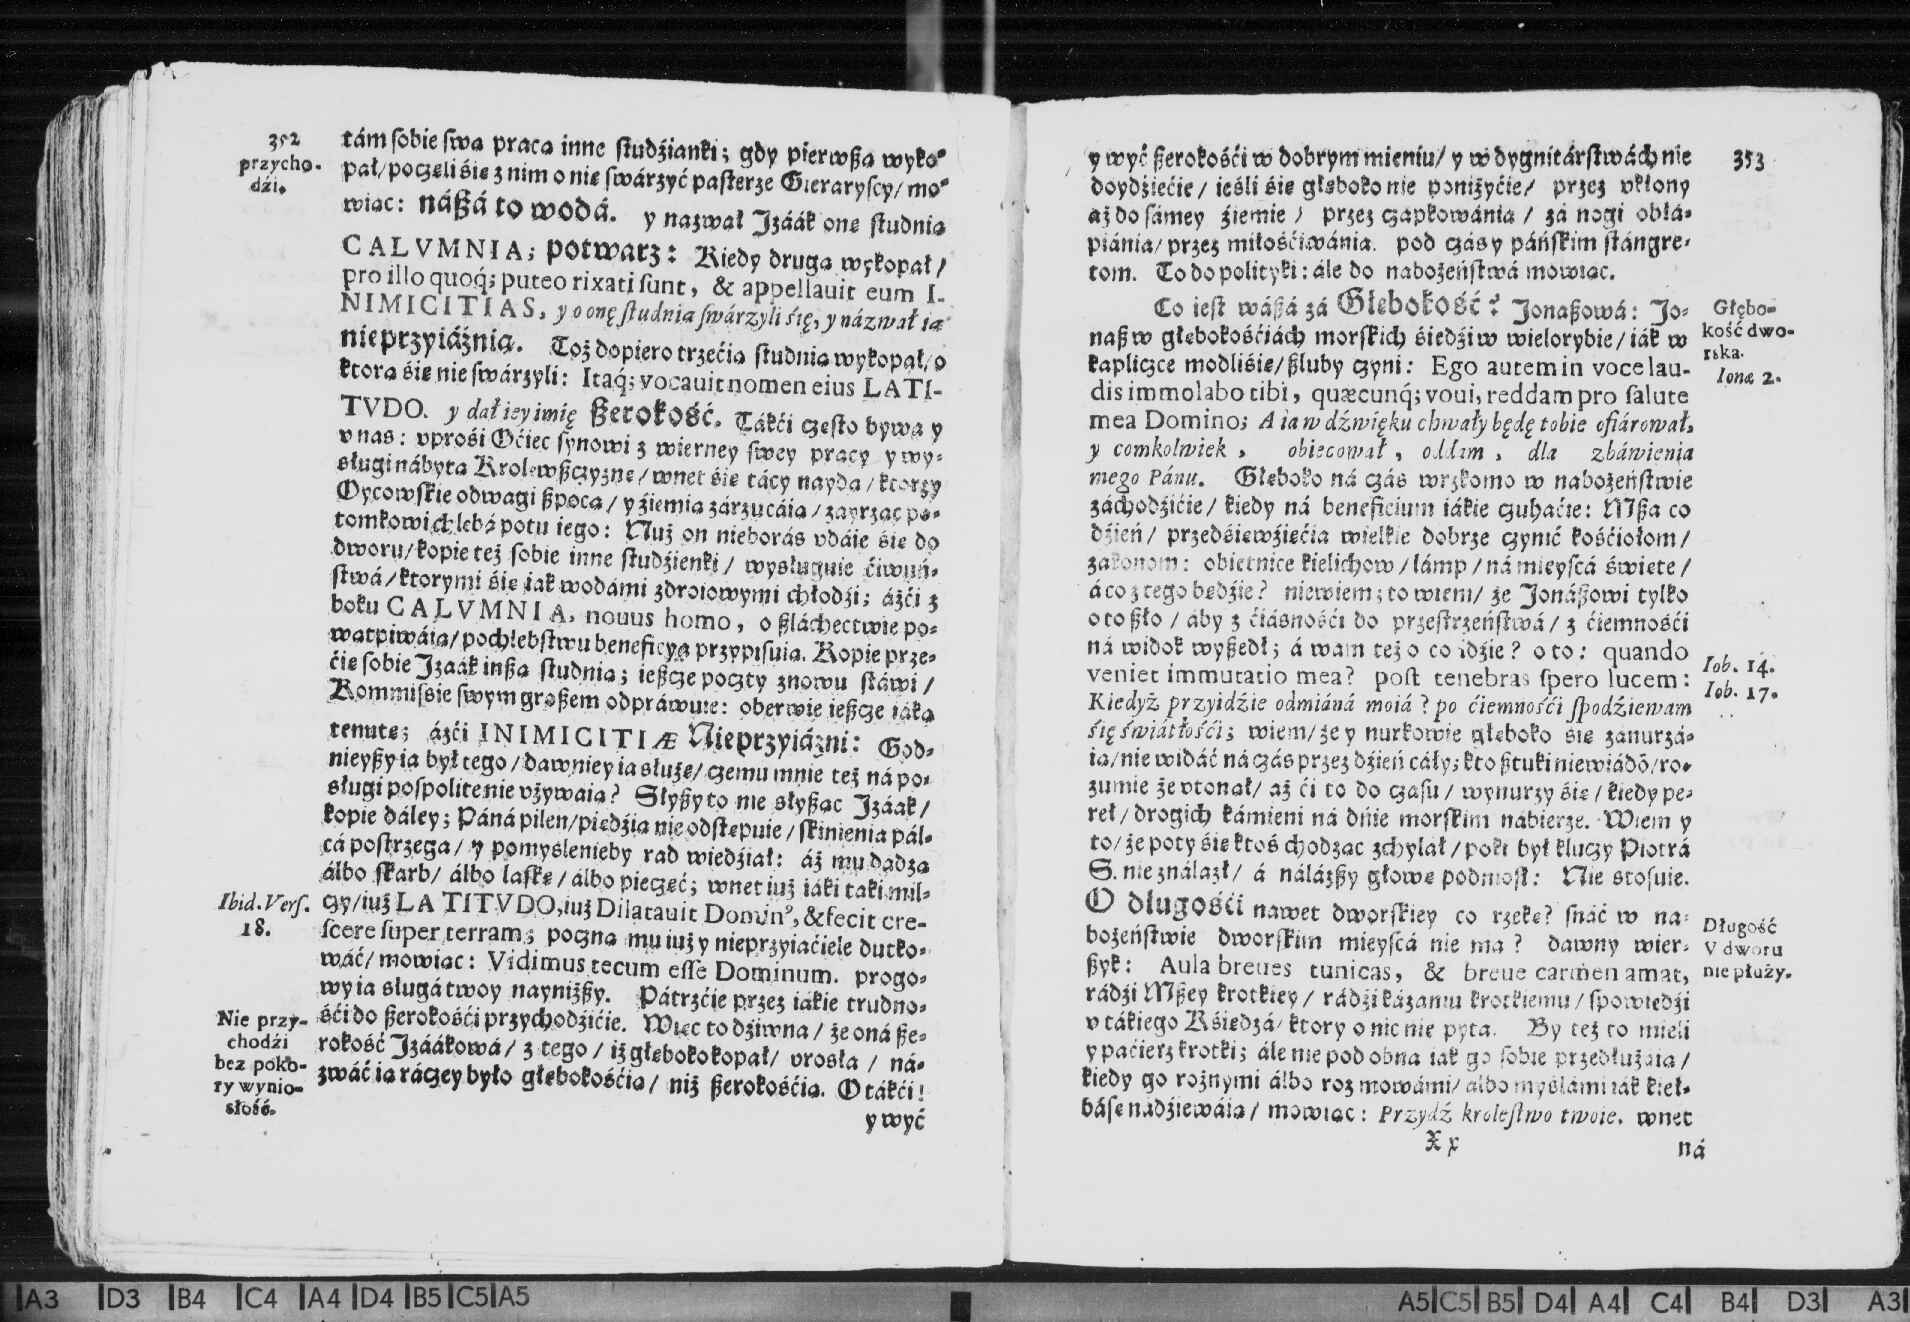 352
przycho-
dźi.
tám sobie swą pracą inne studźianki; gdy pierwßą wyko-
pał/ poczęli się z nim o nię swárzyć pasterze Gieraryscy/ mo-
wiąc: náßá to wodá. y nazwał Jzáák onę studnią
CALVMNIA; potwarz: Kiedy drugą wykopał/
pro illo quoq́; puteo rixati sunt, & appellauit eum I-
NIMICITIAS, y o onę studnia swárzyli się, y názwał ią
nieprzyiáźnią. Toż dopiero trzećią studnią wykopał/ o
ktorą się nie swárzyli: Itaq́; vocauit nomen eius LATI-
TVDO. y dał iey imię ßerokość. Tákći często bywa y
v nas: vprośi Oćiec synowi z wierney swey pracy y wy-
sługi nábytą Krolewßczyznę/ wnet się tácy naydą/ ktorzy
Oycowskie odwagi ßpocą/ y źiemią zárzucáią/ zayrząc po-
tomkowi chlebá potu iego: Nuż on nieborás vdáie się do
dworu/ kopie też sobie inne studźienki/ wysługuie ćiwuń-
stwá/ ktorymi się iak wodámi zdroiowymi chłodźi; áżći z
boku CALVMNIA, nouus homo, o ßláchectwie po-
wątpiwáią/ pochlebstwu beneficya przypisuią. Kopie prze-
ćie sobie Jzaák inßą studnią; ießcze poczty znowu stáwi/
Kommissie swym großem odpráwuie: oberwie ießcze iáką
tenutę; áżći INIMICITIÆ Nieprzyiáźni: God-
nieyßy ia był tego/ dawniey ia służę/ czemu mnie też ná po-
sługi pospolite nie vżywaią? Słyßy to nie słyßąc Jzáak/
kopie dáley; Páná pilen/ piędźią nie odstępuie/ skinienia pál-
cá postrzega/ y pomyślenieby rad wiedźiał: áż mu dadzą
álbo skarb/ álbo laskę/ álbo pieczęć; wnet iuż iáki taki mil-
Ibid. Vers.
18.
czy/ iuż LATITVDO, iuż Dilatauit Domin⁹, & fecit cre-
scere super terram; poczną mu iuż y nieprzyiaćiele dutko-
wáć/ mowiąc: Vidimus tecum esse Dominum. progo-
wy ia sługá twoy nayniżßy. Pátrzćie przez iákie trudno-
Nie przy-
chodźi
bez poko-
ry wynio-
słość.
śći do ßerokośći przychodźićie. Więc to dźiwna/ że oná ße-
rokość Jzáákowá/ z tego/ iż głęboko kopał/ vrosła/ ná-
zwáć ią ráczey było głębokośćią/ niż ßerokośćią. O tákći!
y wyć
353
y wyć ßerokośći w dobrym mieniu/ y w dygnitárstwách nie
doydźiećie/ ieśli się głęboko nie poniżyćie/ przez vkłony
aż do sámey źiemie/ przez czapkowánia/ zá nogi obłá-
piánia/ przez miłośćiwánia. pod czás y páńskim stángre-
tom. To do polityki: ále do nabożeństwá mowiąc.
Głębo-
kość dwo-
rska.
Ionæ 2.
Co iest wáßá zá Głębokość? Jonaßowá: Jo-
naß w głębokośćiách morskich śiedźi w wielorybie/ iák w
kapliczce modli się/ ßluby czyni: Ego autem in voce lau-
dis immolabo tibi, quæcunq́; voui, reddam pro salute
mea Domino; A ia w dźwięku chwały będę tobie ofiárował,
y comkolwiek, obiecował, oddam, dla zbáwienia
mego Pánu. Głęboko ná czás wrzkomo w nabożeństwie
záchodźićie/ kiedy ná beneficium iákie czuhaćie: Mßa co
dźień/ przedśięwźięćia wielkie dobrze czynić kośćiołom/
zakonom: obietnice kielichow/ lámp/ ná mieyscá święte/
á co z tego będźie? niewiem; to wiem/ że Jonáßowi tylko
o to ßło/ aby z ćiásnośći do przestrzeństwá/ z ćiemnośći
ná widok wyßedł; á wam też o co idźie? o to: quando
Iob. 14.
Iob. 17.
veniet immutatio mea? post tenebras spero lucem:
Kiedyż przyidźie odmiáná moiá? po ćiemnośći spodźiewam
się świátłośći; wiem/ że y nurkowie głęboko się zánurzá-
ią/ nie widáć ná czás przez dźień cáły; kto ßtuki niewiádō/ ro-
zumie że vtonął/ aż ći to do czasu/ wynurzy się/ kiedy pe-
reł/ drogich kámieni ná dnie morskim nábierze. Wiem y
to/ że poty się ktoś chodząc zchylał/ poki był kluczy Piotrá
S. nie ználazł/ á nálázßy głowę podniosł: Nie stosuię.
Długość
V dworu
nie płuży.
O długośći nawet dworskiey co rzekę? snáć w na-
bożeństwie dworskim mieyscá nie ma? dawny wier-
ßyk: Aula breues tunicas, & breue carmen amat,
rádźi Mßey krotkiey/ rádźi kázaniu krotkiemu/ spowiedźi
v tákiego Kśiędzá/ ktory o nic nie pyta. By też to mieli
y paćierz krotki; ále nie podobna iak go sobie przedłużáią/
kiedy go rożnymi álbo rozmowámi/ albo myślámi iák kieł-
básę nádźiewáią/ mowiąc: Przydź krolestwo twoie. wnet
Xx
ná
A3 D3 B4 C4 A4 D4 B5 C5 A5
A5 C5 B5 D4 A4 C4 B4 D3 A3